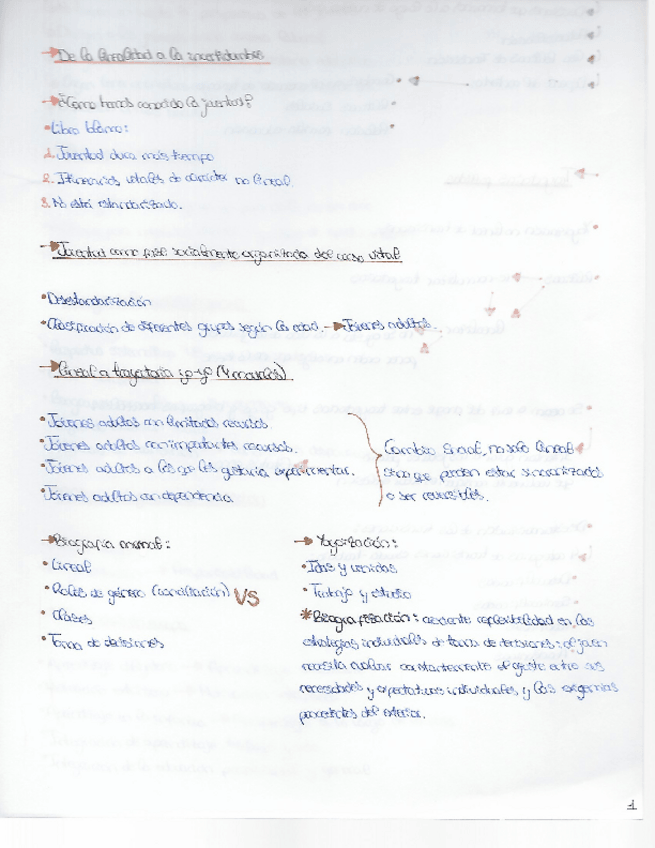 De la linealidad a la incertidumbre
¿Como hemos conocido la juventud?
Libro blanco:
1. Juventud dura más tiempo
2. Itinerarios vitales de carácter no lineal.
3. No está estandarizado.
Juventud como fase socialmente organizada del curso vital
• Desestandarización
• Clasificación de diferentes grupos según la edad. → Jóvenes adultos.
Lineal a trayectoria yo-yo (4 modelos)
• Jóvenes adultos con limitados recursos.
• Jóvenes adultos con importantes recursos.
• Jóvenes adultos a los que les gustaria experimentar.
• Jóvenes adultos con dependencia.
Cambio no solo lineal
sino que pueden estar sincronizados
o ser reversibles.
Biografia normal:
• Lineal
• Roles de género (conciliación)
• Clases
• Toma de decisiones
VS
Yoyización:
• Idas y venidas
• Trabajo y estudio
* Biografización: creciente reflexibilidad en las
estrategias individuales de toma de decisiones: el joven
necesita evaluar constantemente el ajuste entre sus
necesidades y expectativas individuales, y las exigencias
procedentes del exterior.
1